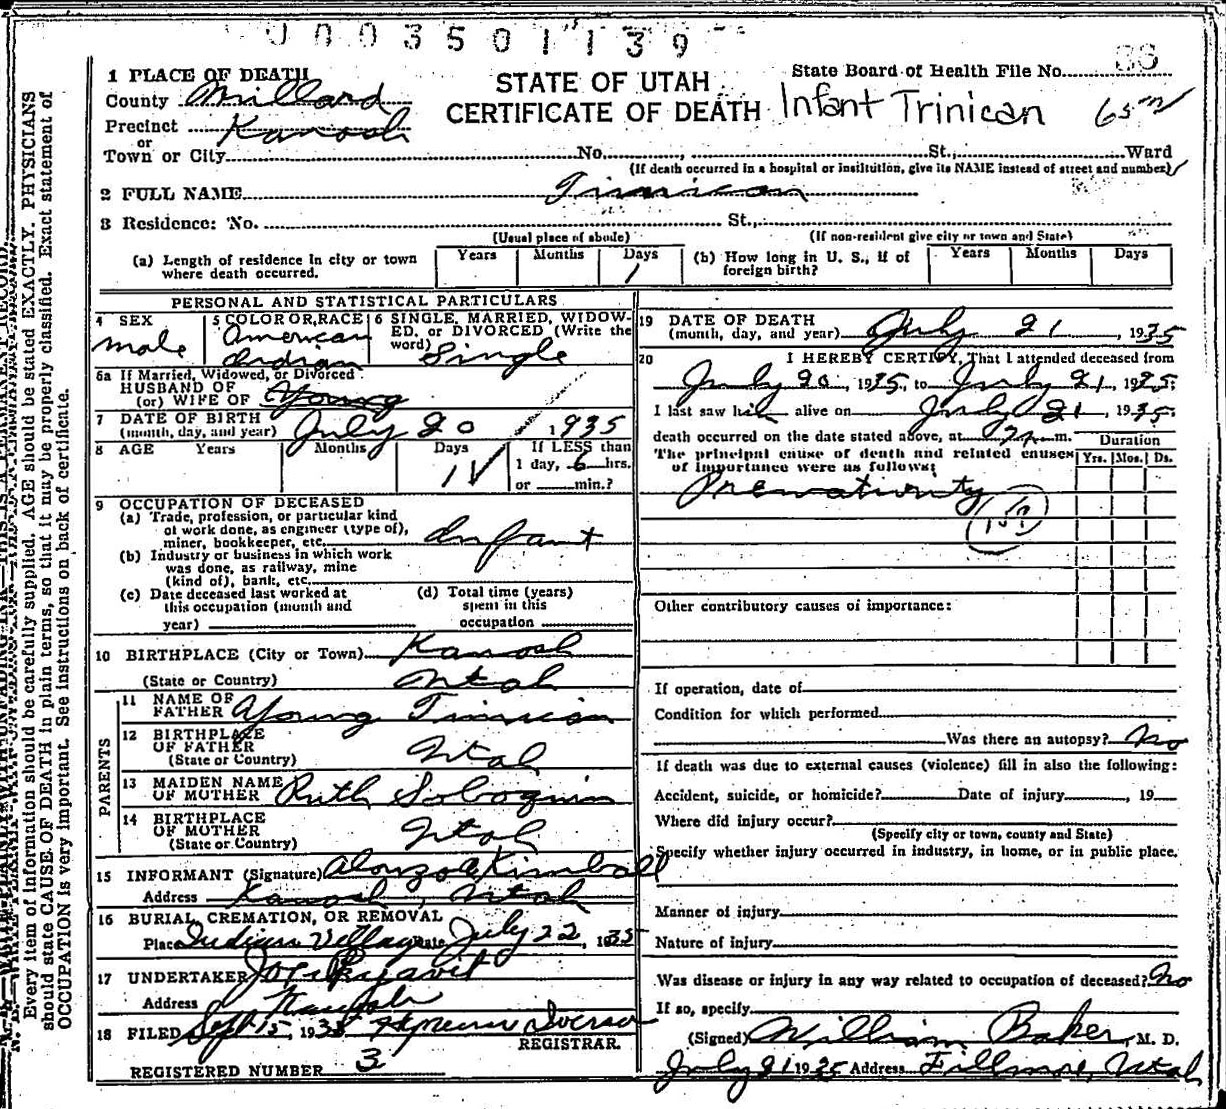 0003501139
88
1 PLACE OF DEATH
County Millard
Precinct Kanosh
or
Town or City No. St., Ward
STATE OF UTAH
CERTIFICATE OF DEATH
State Board of Health File No.
Infant Trinican 65m
(If death occurred in a hospital or institution, give its NAME instead of street and number)
2 FULL NAME Tinnican
3 Residence: No. St.,
(Usual place of abode) (If non-resident give city or town and State)
(a) Length of residence in city or town where death occurred. Years Months Days 1
(b) How long in U. S., if of foreign birth? Years Months Days
PERSONAL AND STATISTICAL PARTICULARS
4 SEX male
5 COLOR OR RACE American Indian
6 SINGLE, MARRIED, WIDOWED, or DIVORCED (Write the word) Single
6a If Married, Widowed, or Divorced
HUSBAND OF
(or) WIFE OF Young
7 DATE OF BIRTH
(month, day, and year) July 20 1935
8 AGE Years Months Days 1 If LESS than
1 day, 6 hrs.
or min.?
9 OCCUPATION OF DECEASED
(a) Trade, profession, or particular kind
of work done, as engineer (type of),
miner, bookkeeper, etc. Infant
(b) Industry or business in which work
was done, as railway, mine
(kind of), bank, etc.
(c) Date deceased last worked at
this occupation (month and
year)
(d) Total time (years)
spent in this
occupation
10 BIRTHPLACE (City or Town) Kanosh
(State or Country) Utah
PARENTS
11 NAME OF
FATHER Young Tinnican
12 BIRTHPLACE
OF FATHER
(State or Country) Utah
13 MAIDEN NAME
OF MOTHER Ruth Soboquin
14 BIRTHPLACE
OF MOTHER
(State or Country) Utah
15 INFORMANT (Signature) Alonzo A Kimball
Address Kanosh, Utah
16 BURIAL, CREMATION, OR REMOVAL
Place Indian Village Date July 22, 1935
17 UNDERTAKER Joe Pikyavit
Address Kanosh
18 FILED Sept 15, 1935 Iverson
REGISTRAR.
REGISTERED NUMBER 3
19 DATE OF DEATH
(month, day, and year) July 21, 1935
20 I HEREBY CERTIFY, That I attended deceased from
July 20, 1935, to July 21, 1935;
I last saw him alive on July 21, 1935;
death occurred on the date stated above, at m.
The principal cause of death and related causes
of importance were as follows:
Duration
Yrs. Mos. Ds.
Prematurity
159
Other contributory causes of importance:
If operation, date of
Condition for which performed
Was there an autopsy? No
If death was due to external causes (violence) fill in also the following:
Accident, suicide, or homicide? Date of injury , 19
Where did injury occur?
(Specify city or town, county and State)
Specify whether injury occurred in industry, in home, or in public place.
Manner of injury
Nature of injury
Was disease or injury in any way related to occupation of deceased? No
If so, specify
(Signed) William Baker, M. D.
July 21 1935 Address Fillmore, Utah
Every item of information should be carefully supplied. AGE should be stated EXACTLY. PHYSICIANS
should state CAUSE OF DEATH in plain terms, so that it may be properly classified. Exact statement of
OCCUPATION is very important. See instructions on back of certificate.